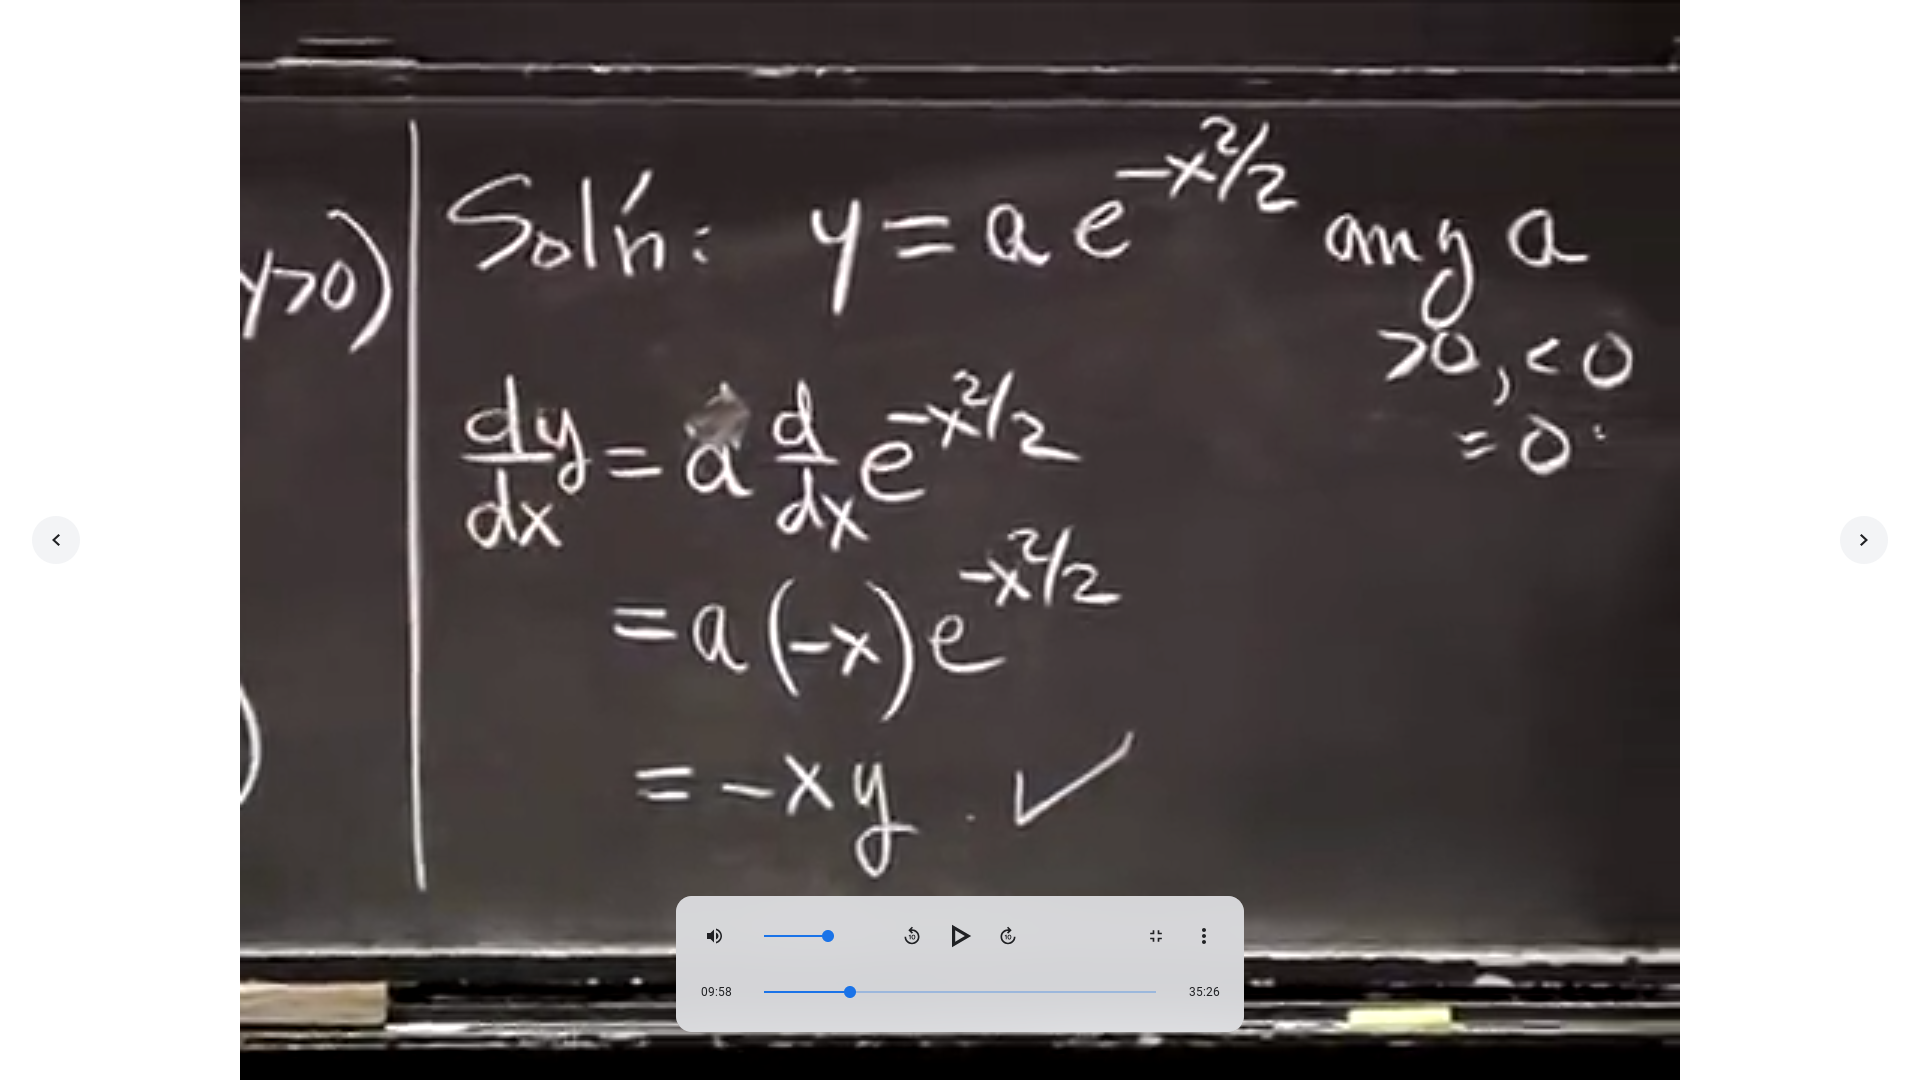 y>0)
Sol'n: y = a e^{-x^2/2} any a
>0, <0
= 0.
dy/dx = a d/dx e^{-x^2/2}
= a(-x) e^{-x^2/2}
= -xy. ✓
)
10 10
09:58 35:26